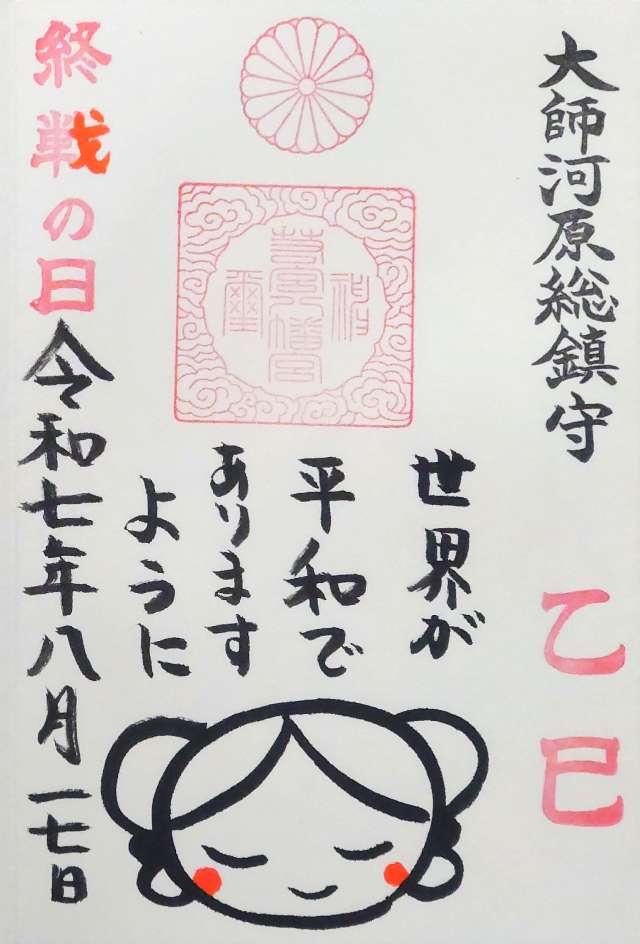 大師河原総鎮守
乙巳
若宮八幡宮
世界が
平和で
あります
ように
終戦の日
令和七年八月一七日